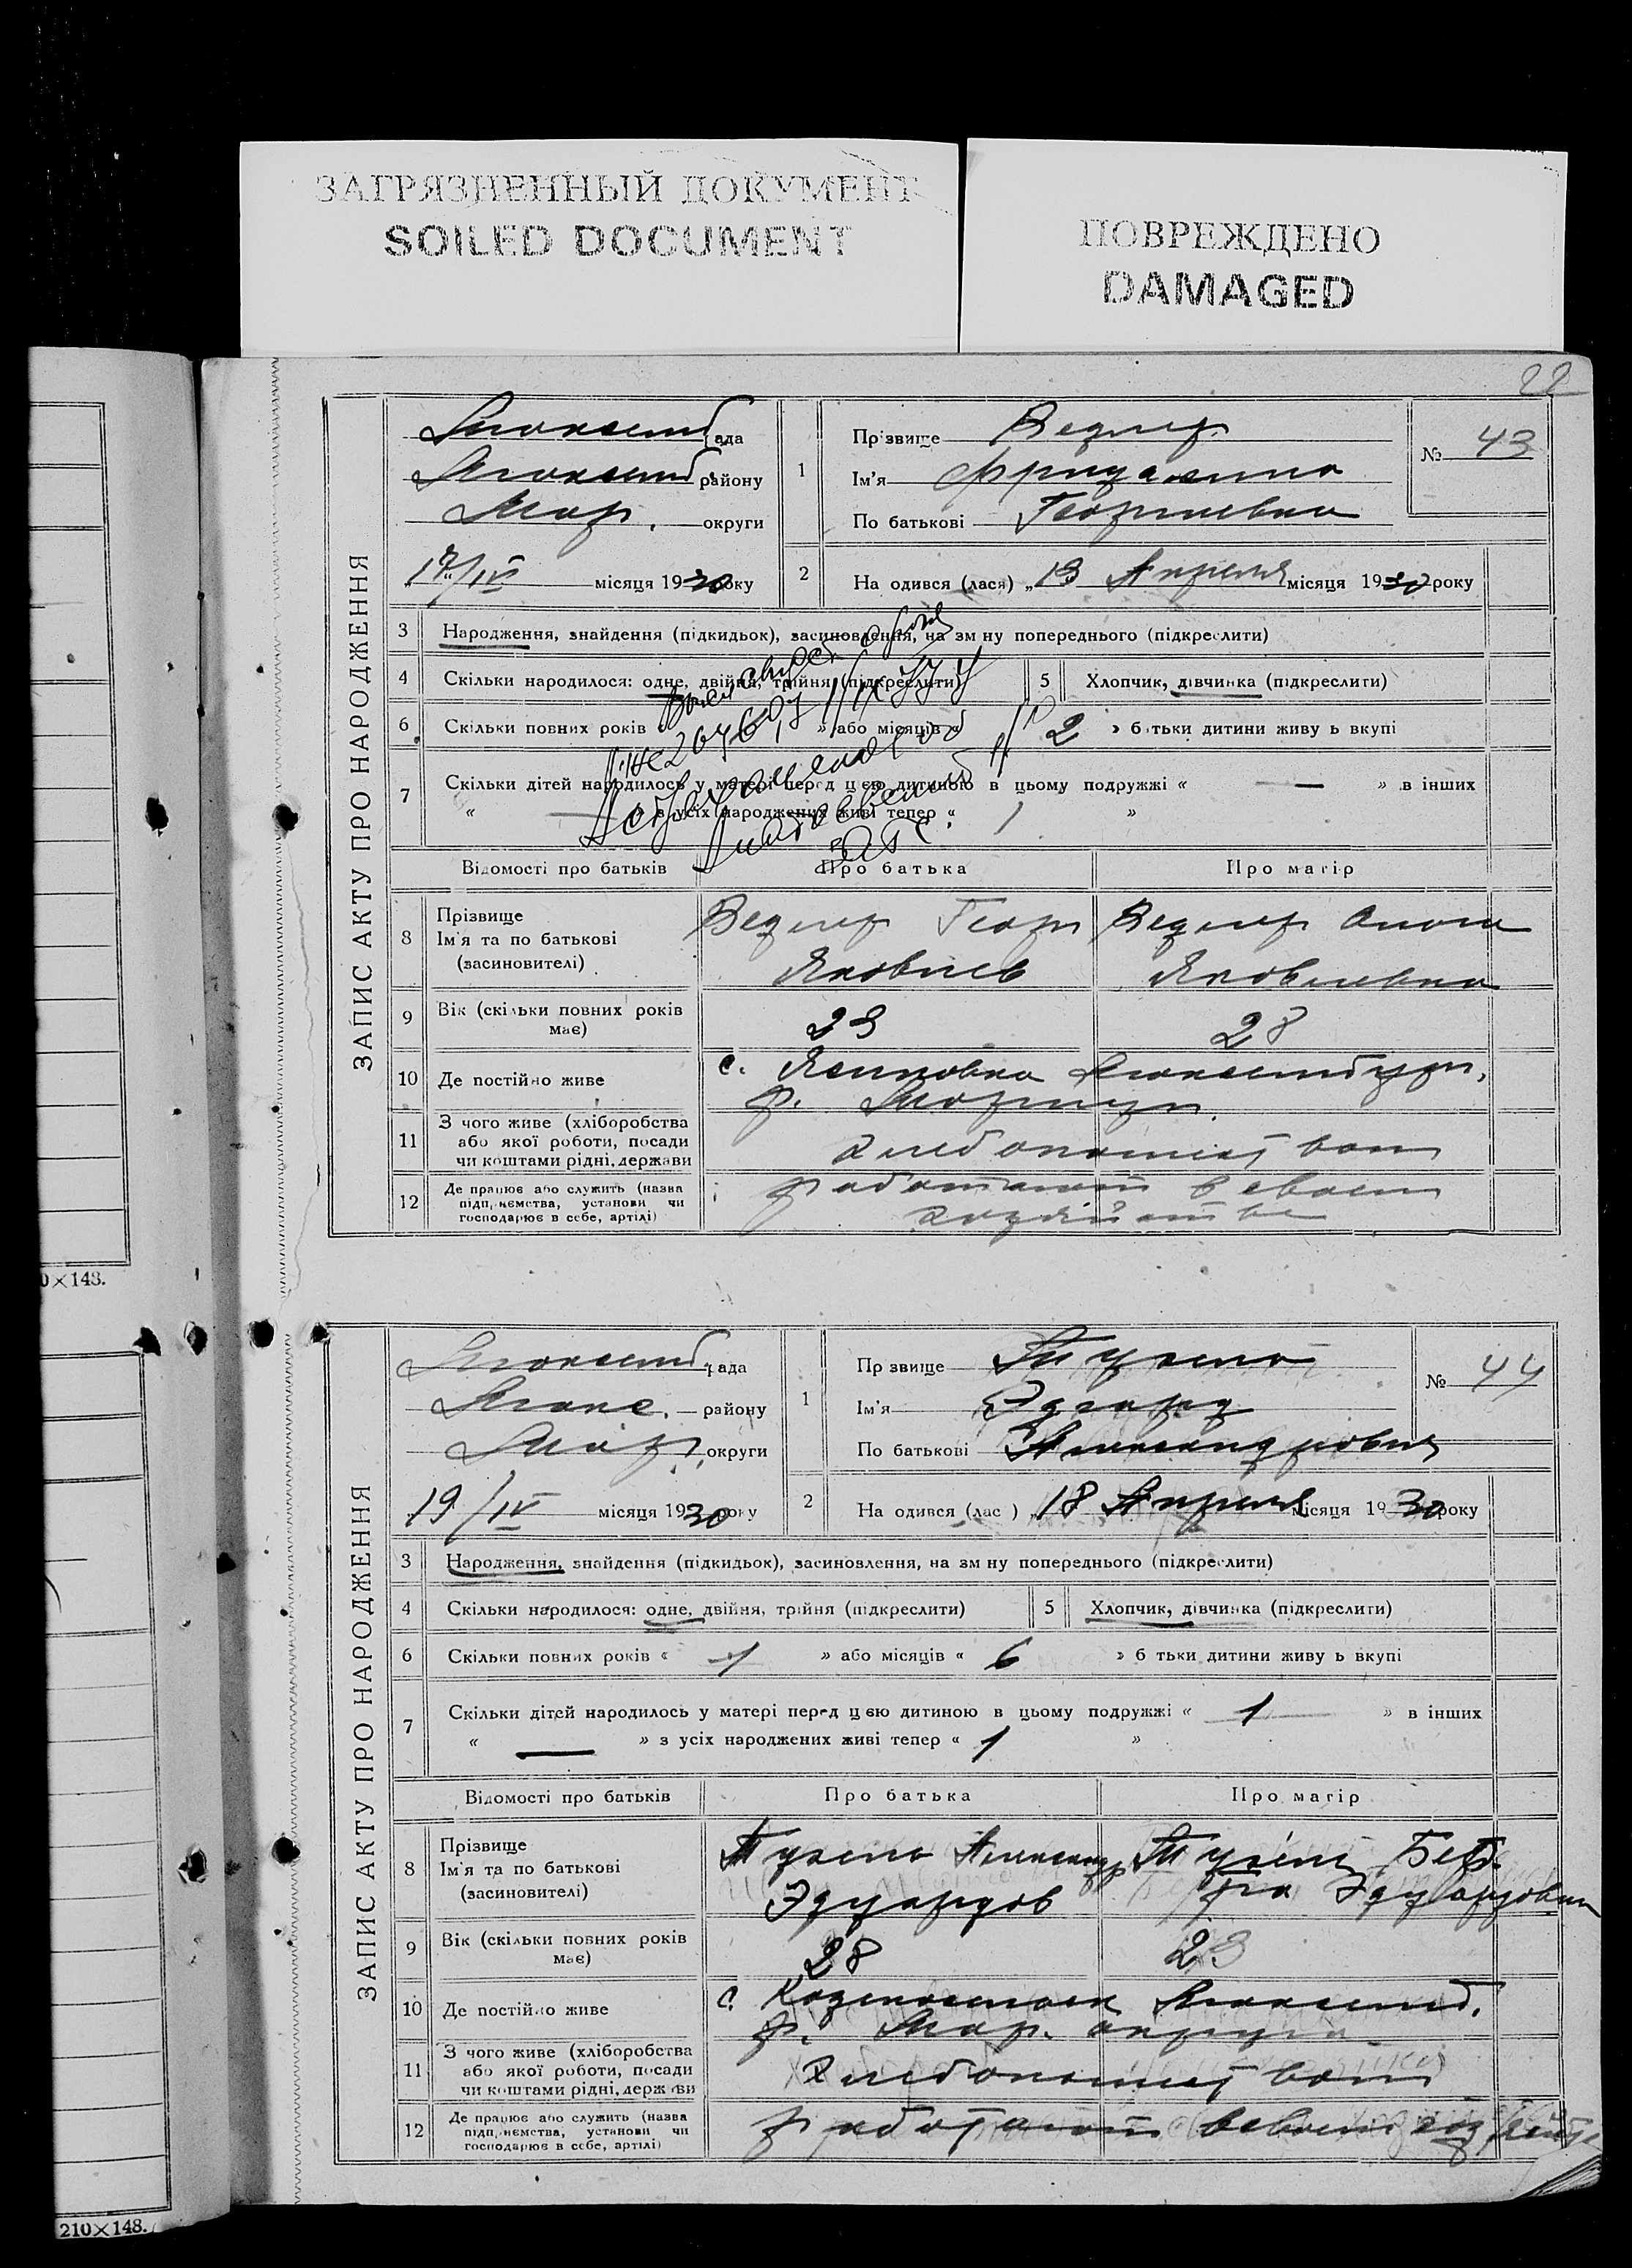 ЗАГРЯЗНЕННЫЙ ДОКУМЕНТ
SOILED DOCUMENT
ПОВРЕЖДЕНО
DAMAGED
22
0×148.
210×148.
ЗАПИС АКТУ ПРО НАРОДЖЕННЯ
Люксемб рада
Люксемб району
Мар. округи
/IV місяця 1930 року
1
Прізвище Ведлер
Ім'я
По батькові Георгиевна
№ 43
2
На одився (лася) „13 Апреля місяця 1930 року
3 Народження, знайдення (підкидьок), засиновлення, на зм ну попереднього (підкреслити)
4 Скільки народилося: одне, двійня, трійня (підкреслити)
5 Хлопчик, дівчинка (підкреслити)
6 Скільки повних років » або місяців « 2 » б тьки дитини живу ь вкупі
7 Скільки дітей народилось у матері перед цією дитиною в цьому подружжі « — » в інших
« — » з усіх народжених живі тепер « 1 »
Відомості про батьків Про батька Про матір
8 Прізвище
Ім'я та по батькові
(засиновителі)
Ведлер Георг
Яковлев
Ведлер Анна
Яковлевна
9 Вік (скільки повних років має) 23 28
10 Де постійно живе с. Люксембург.
р. Мариуп.
11 З чого живе (хліборобства
або якої роботи, посади
чи коштами рідні, держави
хлебопашеством
12 Де працює або служить (назва
підприємства, установи чи
господарює в себе, артілі)
работают в своем
хозяйстве
ЗАПИС АКТУ ПРО НАРОДЖЕННЯ
Люксемб. рада
Люкс. району
Мар. округи
19/IV місяця 1930 року
1
Пр звище
Ім'я Эдгард
По батькові Александрович
№ 44
2
На одився (лас ) „18 Апреля місяця 1930 року
3 Народження, знайдення (підкидьок), засиновлення, на зм ну попереднього (підкреслити)
4 Скільки народилося: одне, двійня, трійня (підкреслити)
5 Хлопчик, дівчинка (підкреслити)
6 Скільки повних років « 1 » або місяців « 6 » б тьки дитини живу ь вкупі
7 Скільки дітей народилось у матері перед цією дитиною в цьому подружжі « 1 » в інших
« — » з усіх народжених живі тепер « 1 »
Відомості про батьків Про батька Про матір
8 Прізвище
Ім'я та по батькові
(засиновителі)
Александр
Эдуардов
Эдуардовна
9 Вік (скільки повних років має) 28 23
10 Де постійно живе с. Люксемб.
р. Мар. округа
11 З чого живе (хліборобства
або якої роботи, посади
чи коштами рідні, держ ви
Хлебопашеством
12 Де працює або служить (назва
підприємства, установи чи
господарює в себе, артілі)
работают в своем